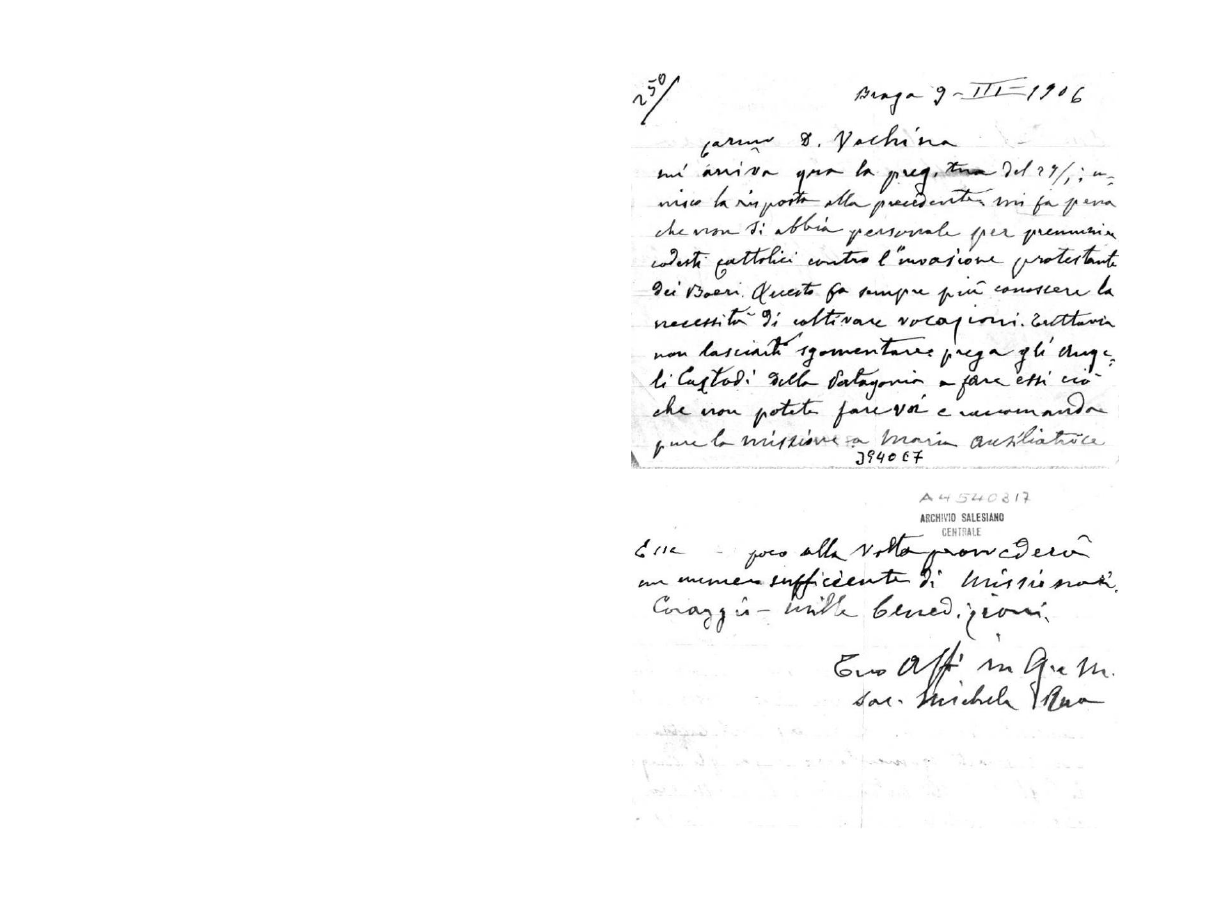 250/
Braga 9-III-1906
Carmo D. Vachina
mi arriva qua la preg. tua del 27/1; u=
nisco la risposta alla precedente mi fa pena
che non si abbia personale per premunire
codesti cattolici contro l'invasione protestante
dei Boeri. Questo fa sempre più conoscere la
necessità di coltivare vocazioni. Tuttavia
non lasciarti sgomentare e prega gli Ange=
li Custodi della Patagonia a fare essi ciò
che non potete fare voi e raccomanda
pure la missione a Maria Ausiliatrice
A4540317
ARCHIVIO SALESIANO
CENTRALE
Essa poco alla volta provvederà
un numero sufficiente di Missionari.
Coraggio - mille benedizioni.
Tuo Aff. in G. e M.
Sac. Michele Rua